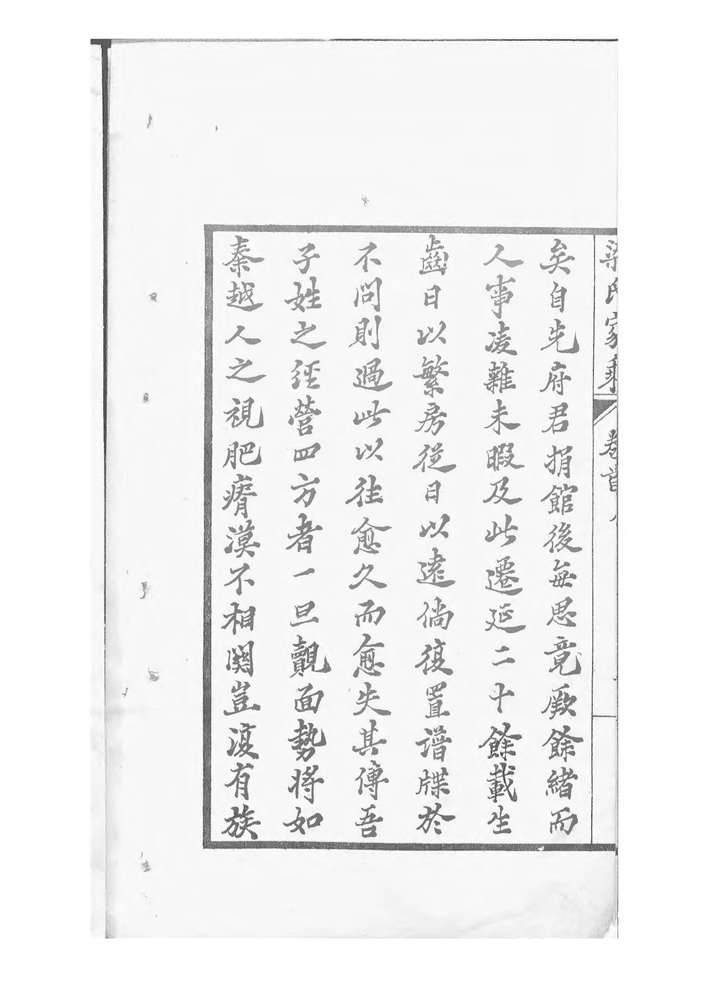 梁氏家乘
卷首
矣自先府君捐館後每思竟厥餘緒而
人事凌雜未暇及此遷延二十餘載生
齒日以繁房從日以遠倘復置譜牒於
不問則過此以往愈久而愈失其傳吾
子姓之經營四方者一旦覿面勢將如
秦越人之視肥瘠漠不相関豈復有族